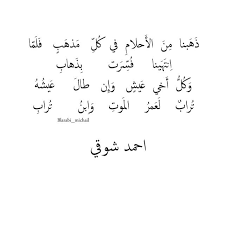 ذَهَبنا مِنَ الأَحلامِ في كُلِّ مَذهَبٍ فَلَمّا
اِنتَهَينا فُسِّرَت بِذَهابِ
وَكُلُّ أَخي عَيشٍ وَإِن طالَ عَيشُهُ
تُرابٌ لَعَمرُ المَوتِ وَابنُ تُرابِ
احمد شوقي